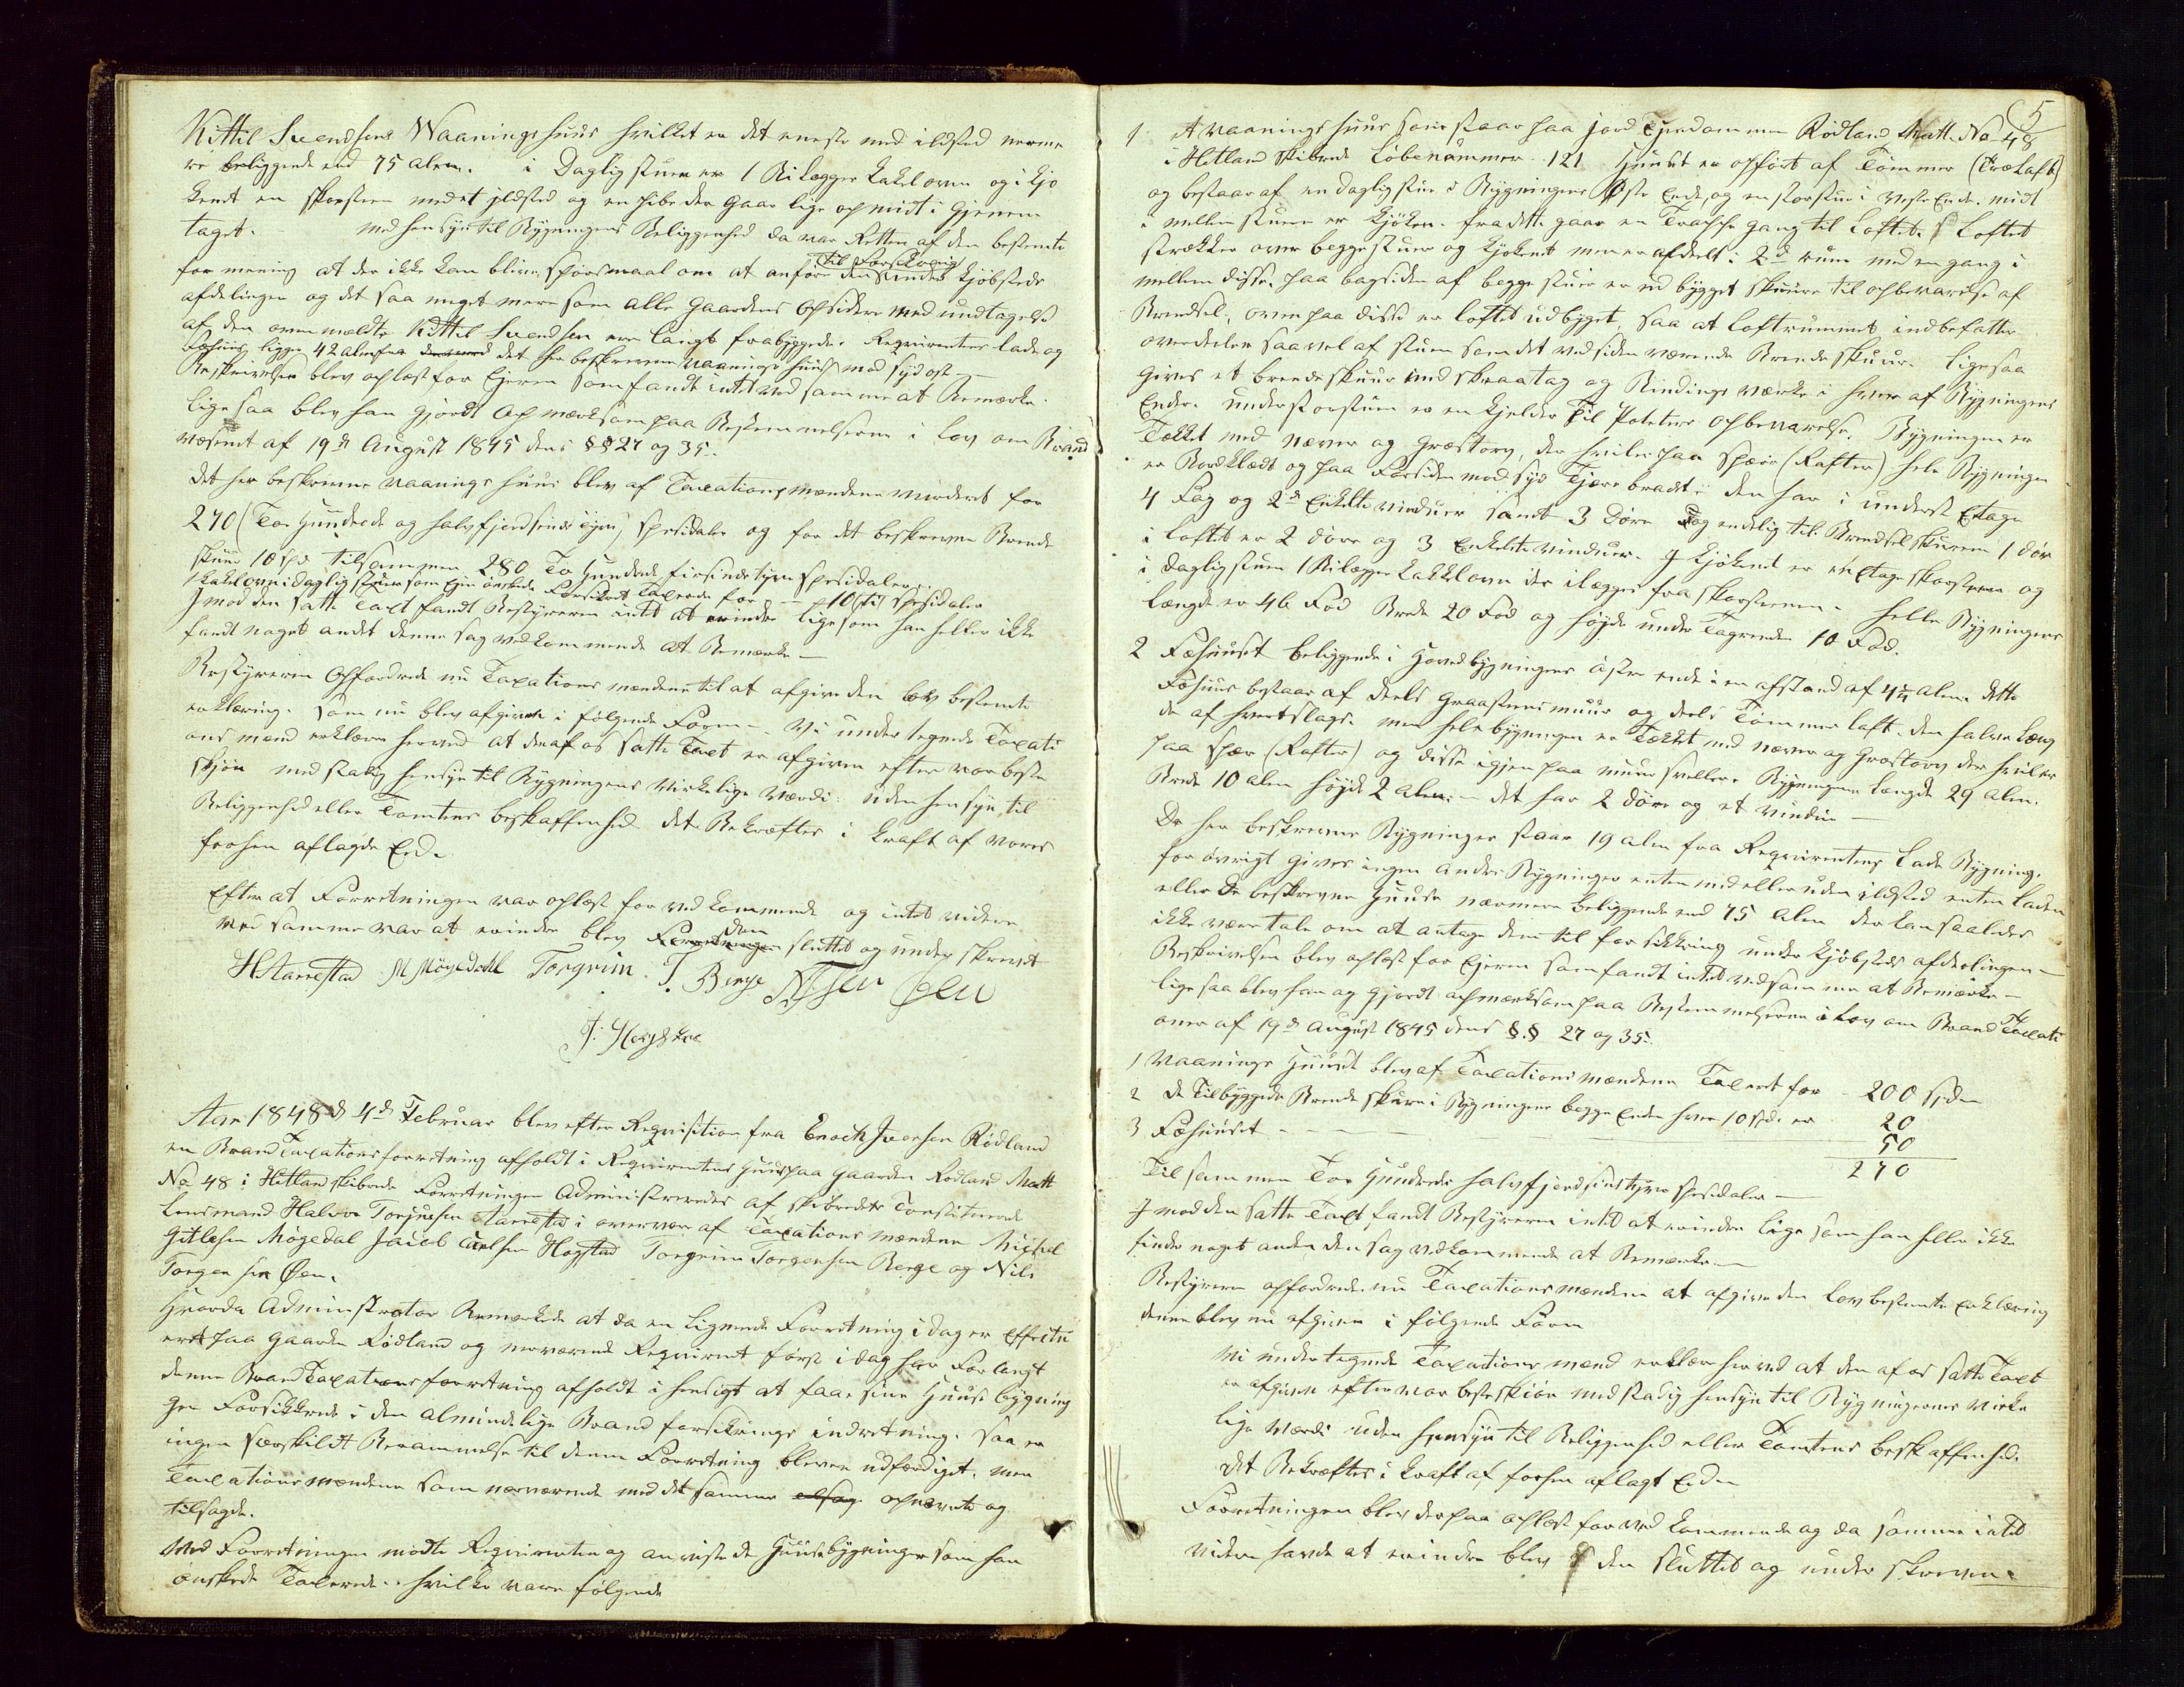 Kittil Svendsens Waaningshuus hvilket er det eneste med ildsted nerme
re beliggende end 75 Alen. i Dagligstuen er 1 Bilegger Kakelovn og i Kjø
kenet en skorsteen med et ildsted og en pibe der Gaar lige op midt i Gjenem
taget. med hensyn til Bygningens Beliggenhed da var Retten af den bestemte
for mening at der ikke kan blive spørsmaal om at anføre den til Forsikring under Kjøbsteds
afdelingen og det saa meget mere som alle Gaardens Opsidere med undtagelse
af den ovenmældte Kittel Svendsen ere langt frabyggede. Reqvirentens lade og
Føhuus ligger 42 Alen fra det her beskrevne vaanings huus mod syd ost –
Beskrivelsen blev oplæst for Ejeren som fandt intet ved samme at Bemærke.
lige saa blev han gjordt Opmærksom paa Bestemmelserne i lov om Brand
væsenet af 19de August 1845 dens §§ 27 og 35.
det her beskrevne vaanings huus blev af Taxationsmændene Vurderet for
270 (Toe Hundrede og halvfjerdsindstyve) spesidaler og for det beskrevne Brende
skuur 10 spd tilsammen 280 To Hundrede firsindstyve spesidaler.
1 Kakelovn i dagligstuen som Ejer ønskede Forsikret Taxerede for – 10 (ti) spesidaler
Imod den satte Taxt fandt Bestyreren intet at erindre lige som han heller ikke
fandt noget andet denne sag vedkommende at Bemærke –
Bestyreren Opfordrede nu Taxationsmændene til at afgive den lov bestemte
erklæring. som nu blev afgivet i følgende Form – Vi under tegnede Taxati
ons mænd erklære herved at den af os satte Taxt er afgiven efter vor beste
skjøn med stadig hensyn til Bygningens Virkelige Værdi: uden hensyn til
Beliggenhed eller Tomtens beskaffenhed det Bekræftes i kraft af vores
forhen aflagde Eed.
Efter at Forretningen var oplæst for ved kommende og intet videre
ved samme var at erindre blev den sluttet og under skrevet
H Aarrestad M Møgedahl Torgrim T. Berge
J: Høgstad
Aar 1848 d 4de Februar blev efter Reqvisition fra Enoch Iversen Rødland
en Brand Taxationsforretning afholdt i Reqvirentens Huus paa Gaarden Rødland Matt
No 48 i Hetland skibrede Forretningen Administreredes af skibredets Constituerede
Lensmand Halvor Torjussen Aarrestad i overvær af Taxationsmændene Michel
Gitlesen Møgedal Jacob Axelsen Høgstad Torgrim Torgersen Berge og Nils
Torgersen Øen.
Hvorda Administrator Bemærkede at da en lignende Forretning i dag er Effectu
eret paa Gaarden Rødland og nerværende Reqvirent først i dag har Forlangt
denne Brand Taxationsforretning afholdt i hensigt at faae sine Huuse bygning
ger Forsikkrede i den Almindelige Brand forsikrings indretning. saa er
ingen særskildt Berammelse til denne Forretning bleven udfærdiget. men
Taxationsmændene som nerværende med det samme opnevnte og
tilsagde.
Ved Forretningen mødte Reqvirenten og anviste de Huusebygninger som han
ønskede Taxerede. hvilke vare følgende
5
1 et vaanings huus som staar paa jord Ejendommen Rødland Matt. No 48
i Hetland Skibrede Løbenummer 121 Huuset er opført af Tømmer (Trælaft)
og bestaar af en dagligstue i Bygningens Østre Ende, og en storstue i Vestre Ende. midt
i mellem stuene er Kjøken. fra dette gaar en Trappe gang til Loftet. Loftet
strækker over begge stuer og Kjøkenet men er afdeelt i 2de rum med en gang i
mellem disse. paa bagsiden af begge stuer er ud bygget skuure til opbevarelse af
Brendsel, oven paa disse er loftet udbyget, saa at loftrummet indbefatter
overdelen saavel af stuen som det ved siden værende Brendeskuur. ligesaa
gives et brendeskuur med skraatag og Bindings værke i hver af Bygningens
Ender. under storstuen er en kjelder til Poteters opbevarelse. Bygningen er
Tekket med næver og græstorv, der hviler paa spær (Rafter) hele Bygningen
er Bordklædt og paa Forsiden mod syd Tjærebradet: den har i underst Etage
4 Fag og 2de Enkelte vinduer samt 3 Døre og endelig til Brendselskurene 1 dør
i Loftet er 2 døre og 3 Enkelte vinduer. I Kjøkenet er en Etages skorsteen og
i Dagligstuen 1 Bilegger Kakkelovn der ilegges fra skorstenen. Helle Bygningens
længde er 46 Fod Brede 20 Fod og høyde under Tagrenden 10 Fod.
2 Føhuuset beliggende i Hovedbygningens østre ende i en afstand af 4¼ Alen. dette
Føhuus bestaar af deels Graasteens muur og deels Tømmer laft. den halve Læng
de af hvert slags. men hele bygningen er Tekket med næver og Grøstorv der hviler
paa spær (Rafter) og disse igjen paa muur sveller. Bygningens Længde 29 Alen.
Brede 10 Alen høyde 2 Alen. – det har 2 døre og et vindue –
De her beskrevne Bygninger staar 19 Alen fra Reqvirentens Lade Bygning.
for øvrigt gives ingen andre Bygninger enten med eller uden ildsted enten Laden
eller De beskrevne Huuse nærmere beliggende end 75 Alen der kan saaledes
ikke være tale om at antage dem til forsikkring under Kjøbsteds afdelingen –
Beskrivelsen blev oplæst for Ejeren som fandt intet ved samme at Bemærke –
lige saa blev han og gjordt opmærksom paa Bestemmelserne i Lov om Brand Taxati
oner af 19de August 1845 dens §.§ 27 og 35.
1 Vaanings Huuset blev af Taxations mændene Taxeret for 200 spd
2 de Tilbyggede Brende skure i Bygningens begge Ender hver 10 spd. er 20
3 Føhuuset – – – 50
270
Tilsammen Toe Hundrede halvfjerdsinstyve spesidaler –
I mod den satte Taxt fandt Bestyreren intet at erindre lige som han heller ikke
finde noget andet den sag vedkommende at Bemærke –
Bestyreren opfordrede nu Taxationsmændene at afgive den lov bestemte Erklæring
denne blev nu afgiven i følgende Form
Vi undertegnede Taxations mænd erklære herved at den af os satte Taxt
er afgiven efter vor beste skjøn med stadig hensyn til Bygningernes virke
lige Værdi uden hensyn til Beliggenhed eller Tomtens beskaffenhed.
det Bekræftes i kraft af forhen aflagt Eed –
Forretningen blev derpaa oplæst for ved kommende og da samme intet
videre havde at erindre blev den sluttet og under skreven.